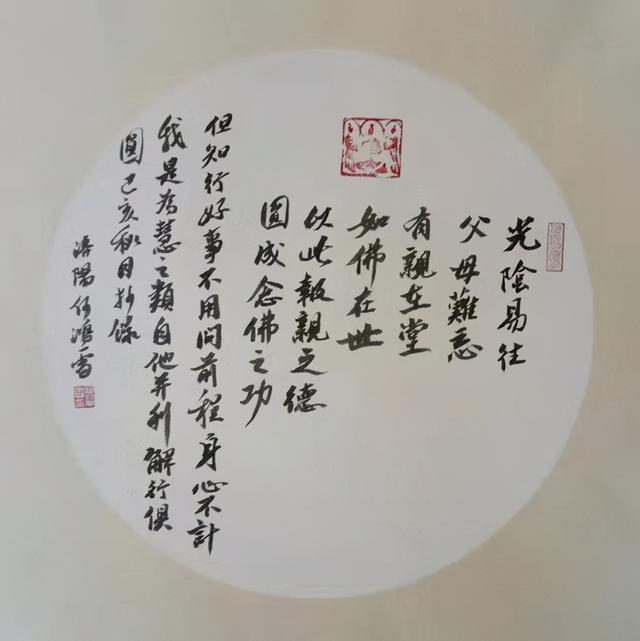 光陰易往
父母難忘
有親在堂
如佛在世
以此報親之德
圓成念佛之功
但知行好事不用問前程身心不計
我是為慧之類自他并利解行俱
圓己亥秋月抄錄
涪陽鴻雪